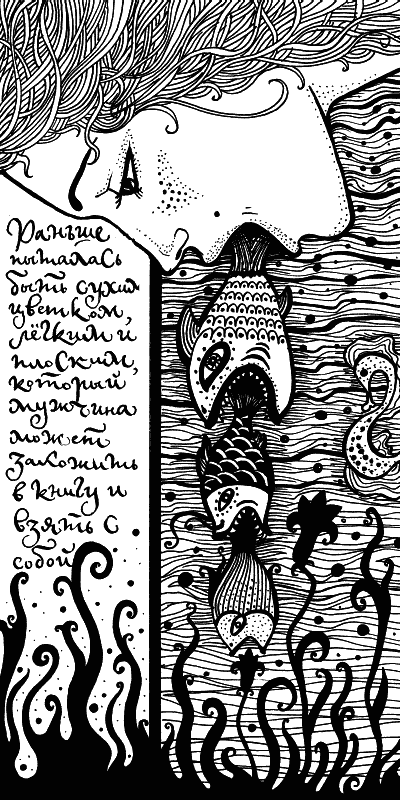 Раньше
пыталась
быть сухим
цветком,
лёгким и
плоским,
который
мужчина
может
заложить
в книгу и
взять с
собой